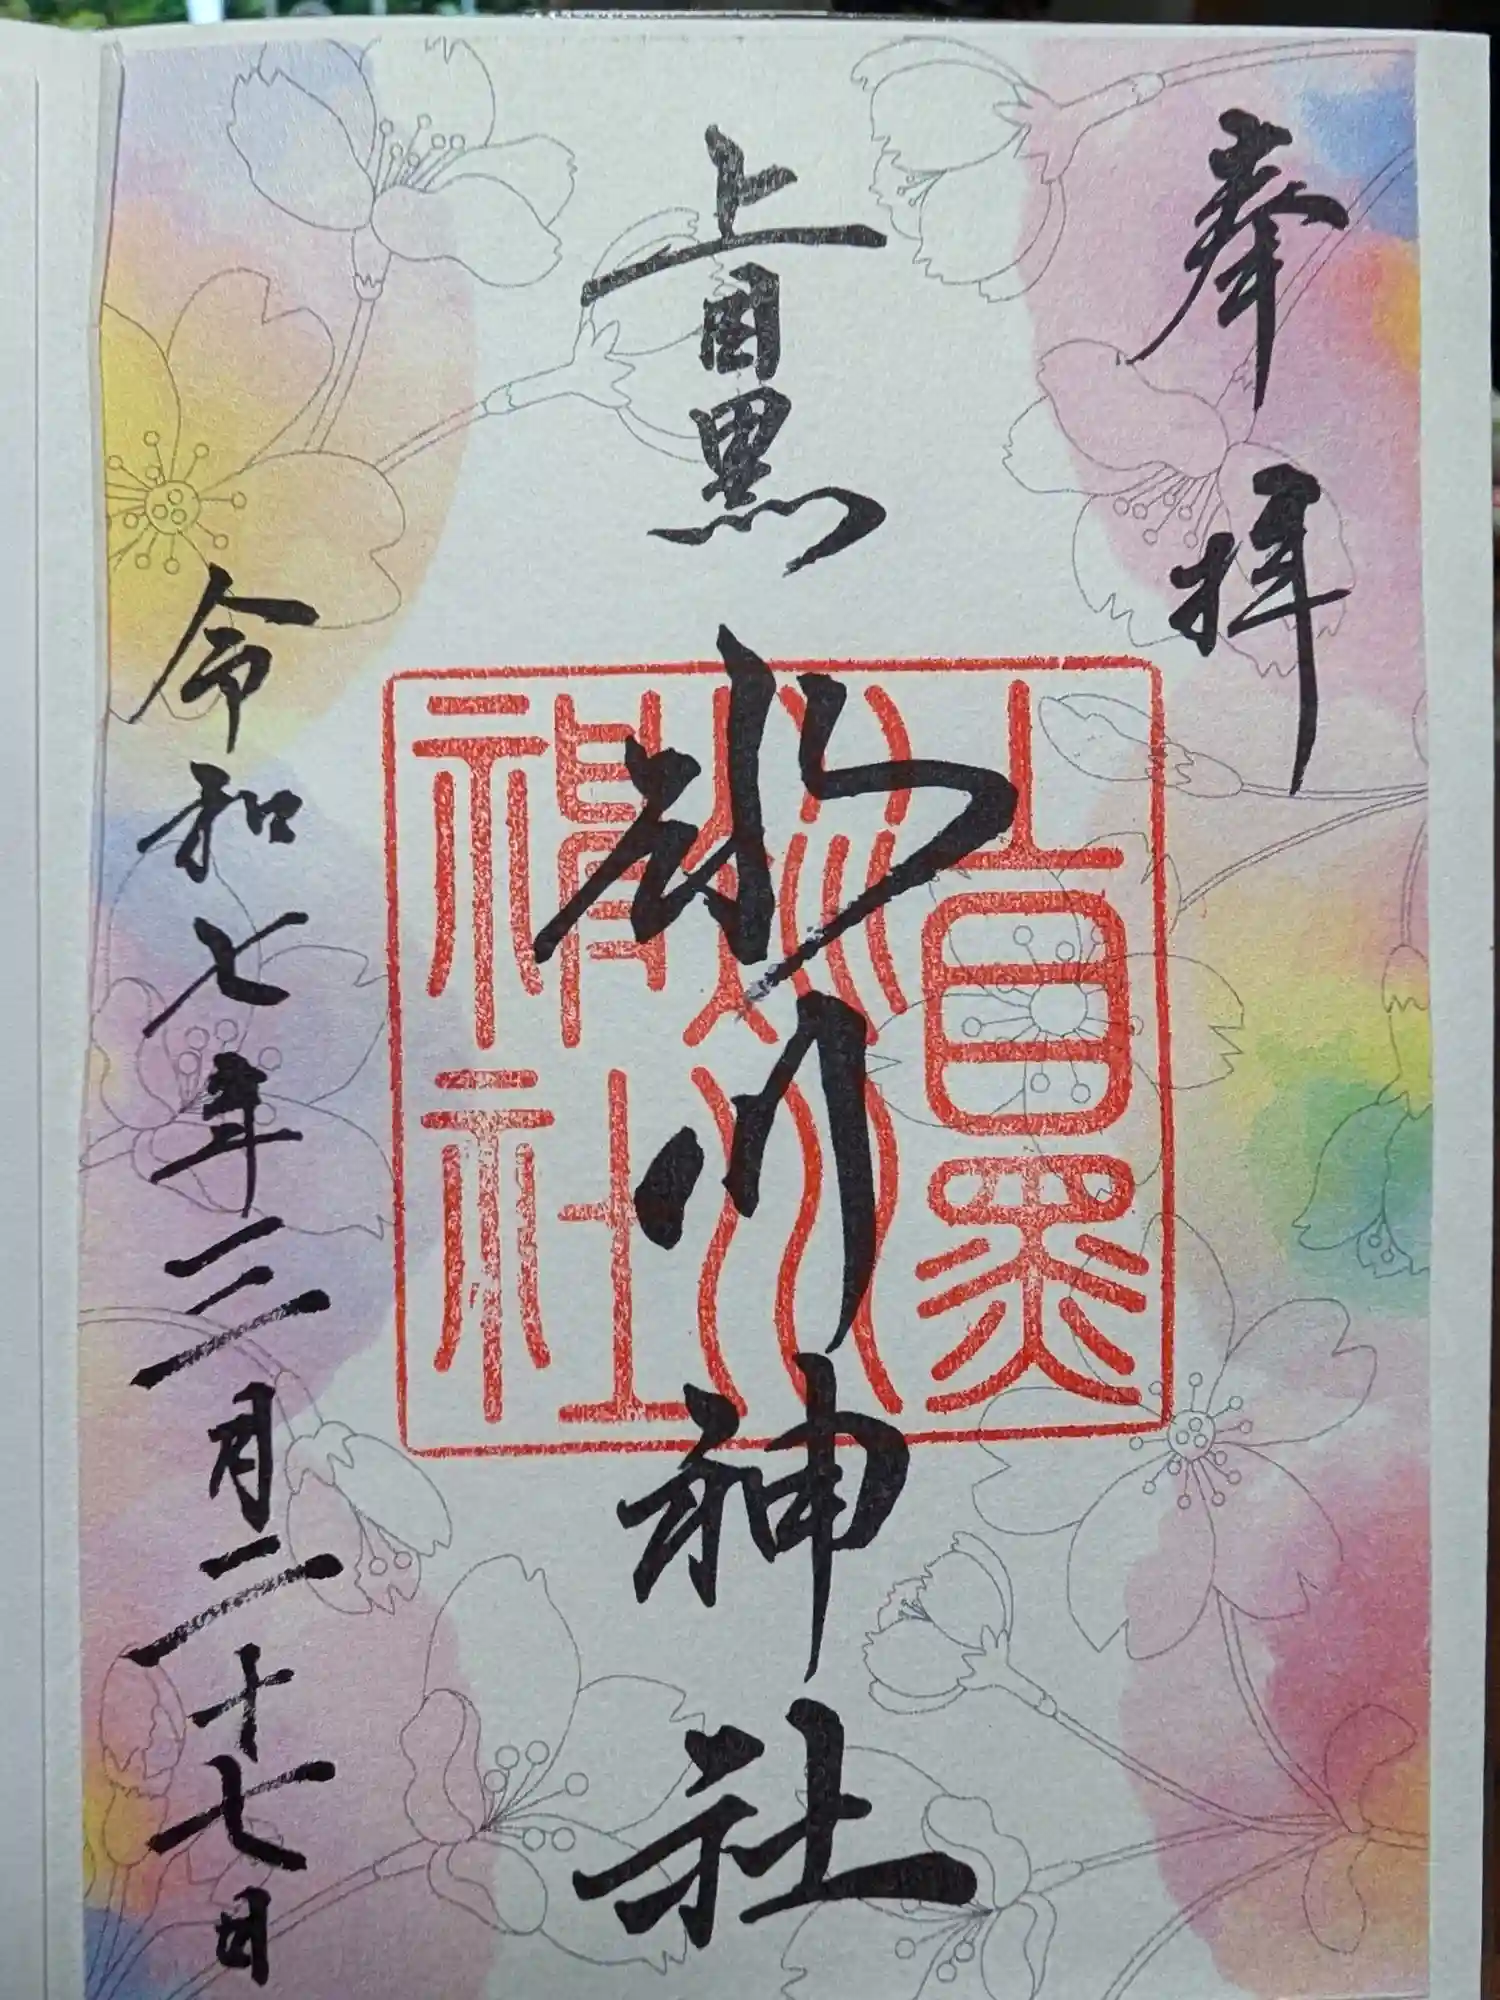 奉拝
上目黒氷川神社
上目黒
氷川
神社
令和七年三月二十七日